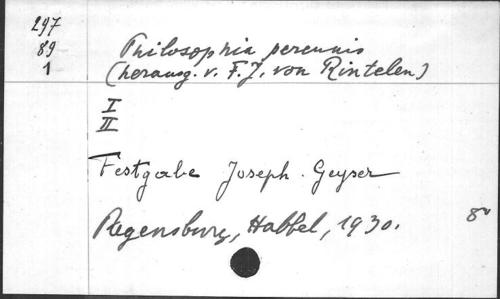 297
89
1
Philosophia perennis
(herausg. v. F. J. von Rintelen)
I
II
Festgabe Joseph Geyser
Regensburg, Habbel, 1930.
8°